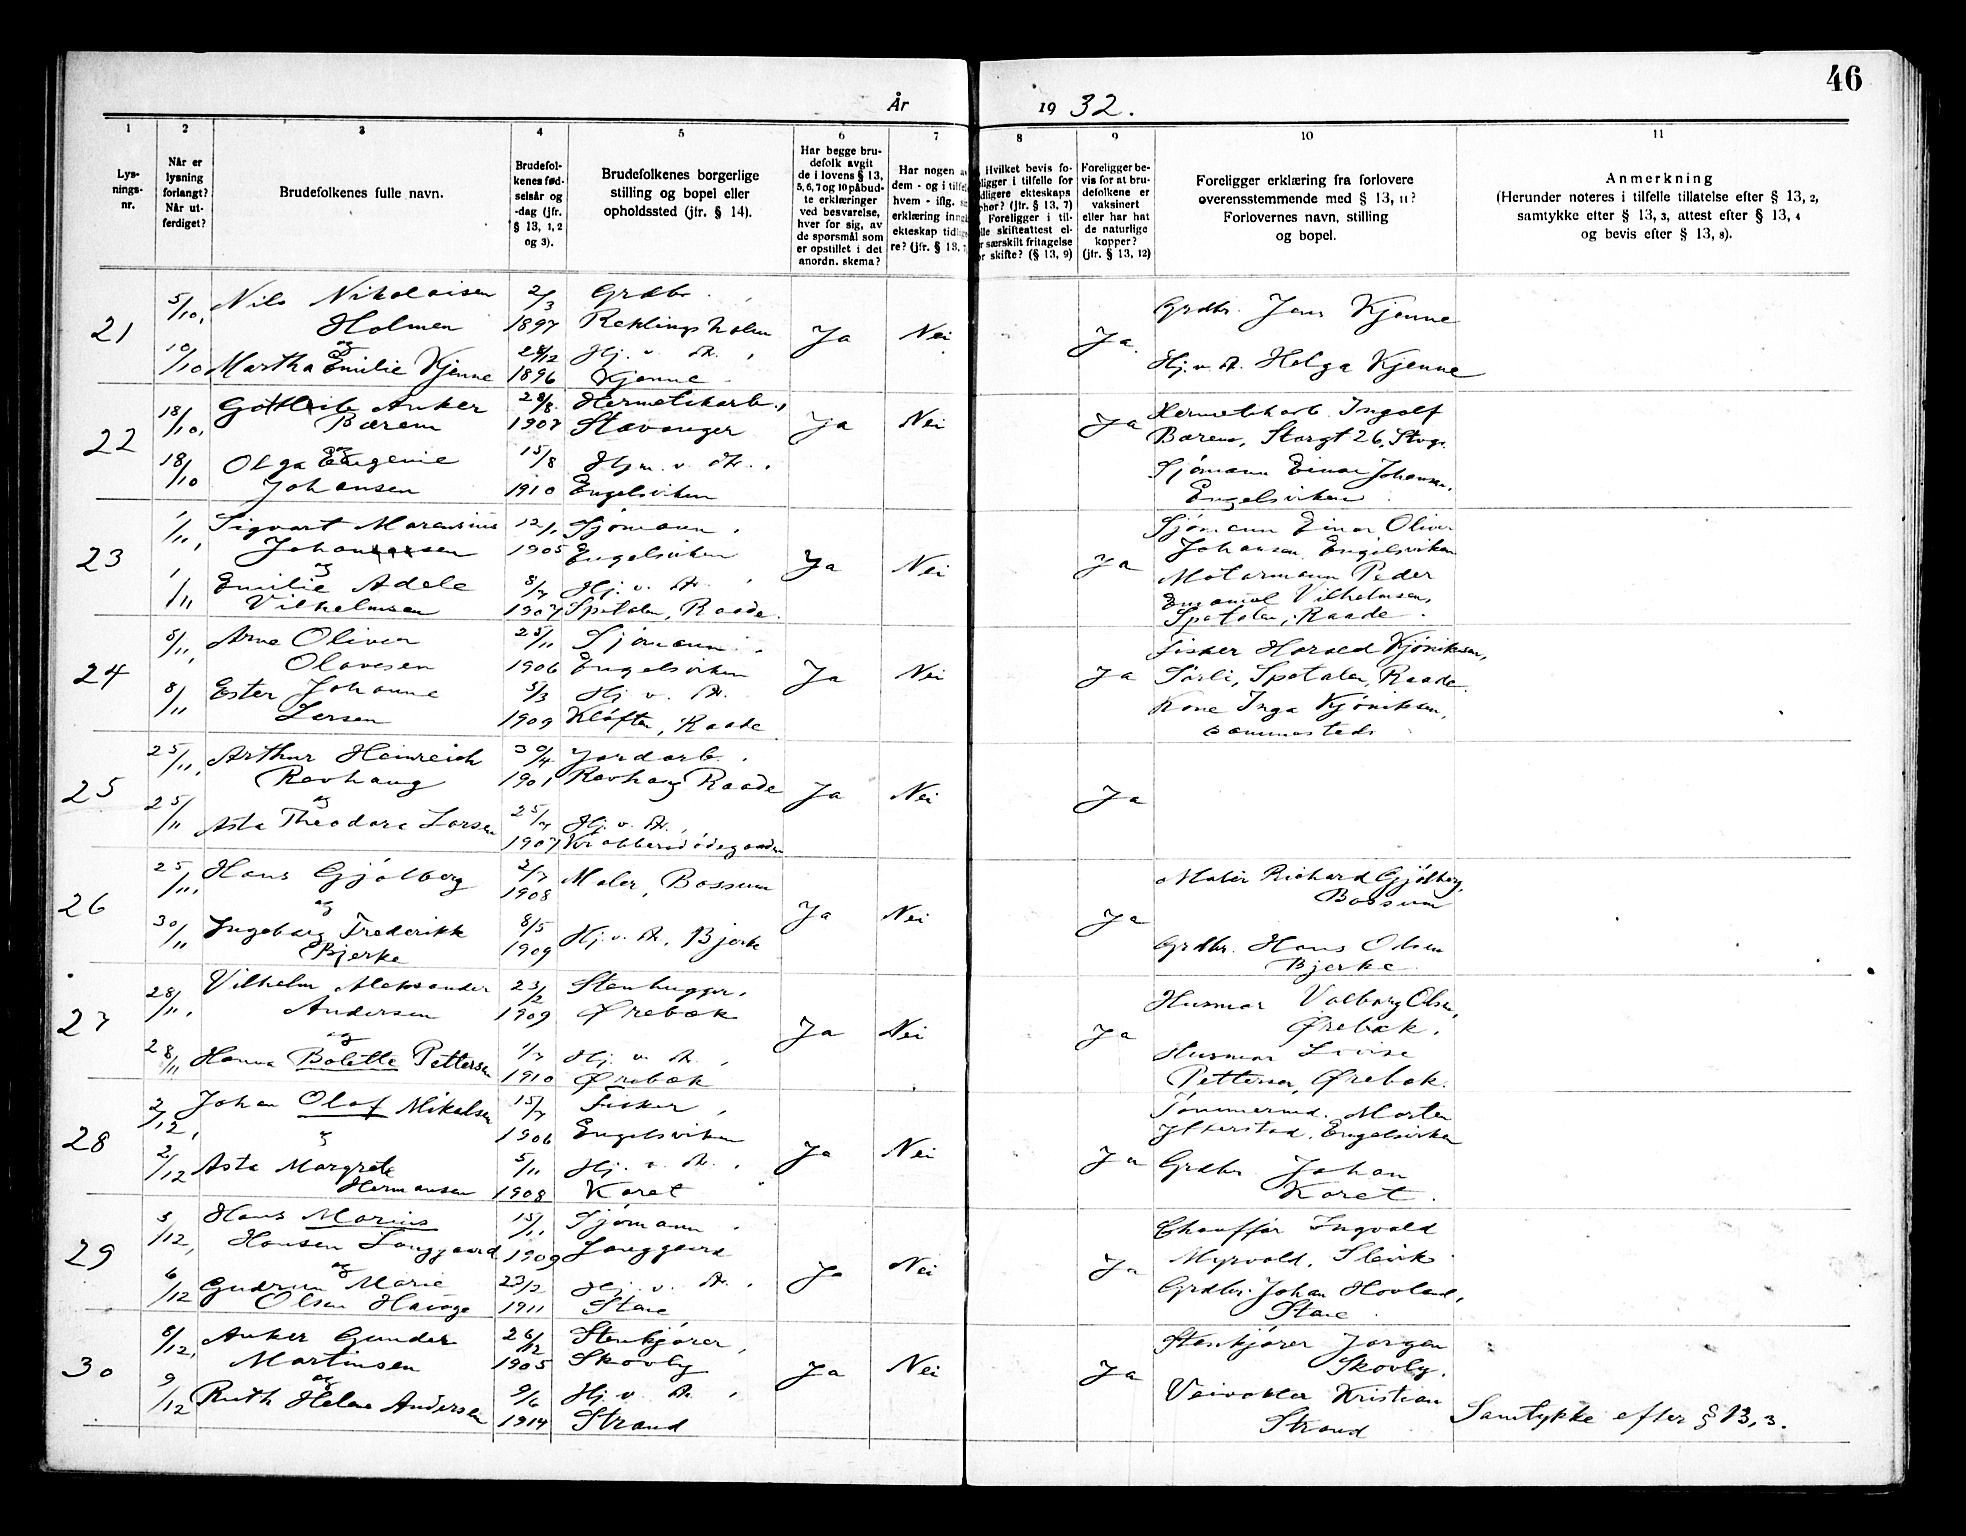 46
År 1932.
1 2 3 4 5 6 7 8 9 10 11
Lys-
nings-
nr.
Når er
lysning
forlangt?
Når ut-
ferdiget?
Brudefolkenes fulle navn.
Brudefol-
kenes fød-
selsår og
-dag (jfr.
§ 13, 1, 2
og 3).
Brudefolkenes borgerlige
stilling og bopel eller
opholdssted (jfr. § 14).
Har begge bru-
defolk avgit
de i lovens § 13,
5, 6, 7 og 10 påbud-
te erklæringer
ved besvarelse,
hver for sig, av
de spørsmål som
er opstillet i det
anordn. skema?
Har nogen
dem - og i
hvem - iflg.
erklæring
ekteskap
re? (jfr. § 13,
Hvilket bevis fo-
religger i tilfelle for
ekteskaps
(jfr. § 13, 7)
Foreligger i til-
skifteattest el-
særskilt fritagelse
skifte? (§ 13, 9)
Foreligger be-
vis for at bru-
defolkene er
vaksinert
eller har hat
de naturlige
kopper?
(jfr. § 13, 12)
Foreligger erklæring fra forlovere
overensstemmende med § 13, 11?
Forlovernes navn, stilling
og bopel.
Anmerkning
(Herunder noteres i tilfelle tillatelse efter § 13, 2,
samtykke efter § 13, 3, attest efter § 13, 4
og bevis efter § 13, 8).
21 5/10, Nils Nikolaisen 2/3 Grdbr. Grdbr. Jens Kjenne
Holmen 1897 Rehlingsholm Ja Nei Ja.
og
10/10 Martha Emilie Kjenne 28/12 1896 Hj. v. Kjenne Hj. v. Helga Kjenne
22 18/10, Anker 28/8 Hermetikarb., Hermetikarb. Ingolf
Bærem 1907 Stavanger Ja Nei Ja Bærem, Storgt 26, Stvgr.
og
18/10 Olga Eugenie 15/8 Sjømann Einar Johansen,
Johansen 1910 Engelsviken Engelsviken
23 1/11, Sigvart Marensius 12/1 Sjømann, Sjømann Einar Oliver
Johansen 1905 Engelsviken Ja Nei Ja Johansen, Engelsviken
og
1/11 Emilie Adele 8/7 Hj. v. Motormann Peder
Vilhelmsen 1907 Spetalen, Raade. Emanuel Vilhelmsen,
Spetalen, Raade.
24 8/11, Arne Oliver 25/11 Sjømann. Fisker Harald Kjøniksen,
Olavesen 1906 Engelsviken Ja Nei Ja Sørli, Spetalen, Raade.
8/11 Ester Johanne 5/3 Hj. v. Kone Inga Kjøniksen,
Larsen 1909 Kløften, Raade sammesteds
25 25/11, Arthur Heinreich 30/4 Jordarb.
Ravhaug 1901 Ravhaug Raade Ja Nei Ja
og
25/11 Asta Theodora Larsen 25/7 Hj. v.
1907
26 25/11, Hans Gjølberg 1908 Maler, Bossum Maler Richard Gjølberg,
Bossum
og Ja Nei Ja
30/11 Ingeborg Frederikke 8/5 Hj. v. Bjerke Grdbr. Hans Olsen
Bjerke 1909 Bjerke
27 28/11, Vilhelm Aleksander 23/2 Stenhugger, Husmor Valborg Olsen,
Andersen 1909 Ørebæk Ja Nei Ja Ørebæk.
og
28/11 Hanna Bolette Pettersen 1/7 Hj. v. Husmor Lovise
1910 Ørebæk Pettersen, Ørebæk.
28 2/12, Johan Olaf Mikalsen 15/7 Fisker, Tømmermd. Marten
1906 Engelsviken Ja Nei Ja Engelsviken
2/12 Asta Margrete 5/11 Hj. v. Grdbr. Johan
Hermansen 1908 Karet Karet.
29 5/12, Hans Marius 15/11 Sjømann Chauffør Ingvald
Hansen Langgaard 1909 Langgaard Ja Nei Ja Myrvold, Slevik
og
6/12 Gudrun Marie 23/2 Hj. v. Grdbr. Johan Hovland,
Olsen Hauge 1911 Stene Stene.
30 8/12, Anker Gunder 26/12 Stenkjører, Stenkjører Jørgen
Martinsen 1905 Skovby Ja Nei Ja Skovby.
og
9/12 Ruth Helene Andersen 9/6 Hj. v. Veivokter Kristian
1914 Strand Strand Samtykke efter § 13, 3.